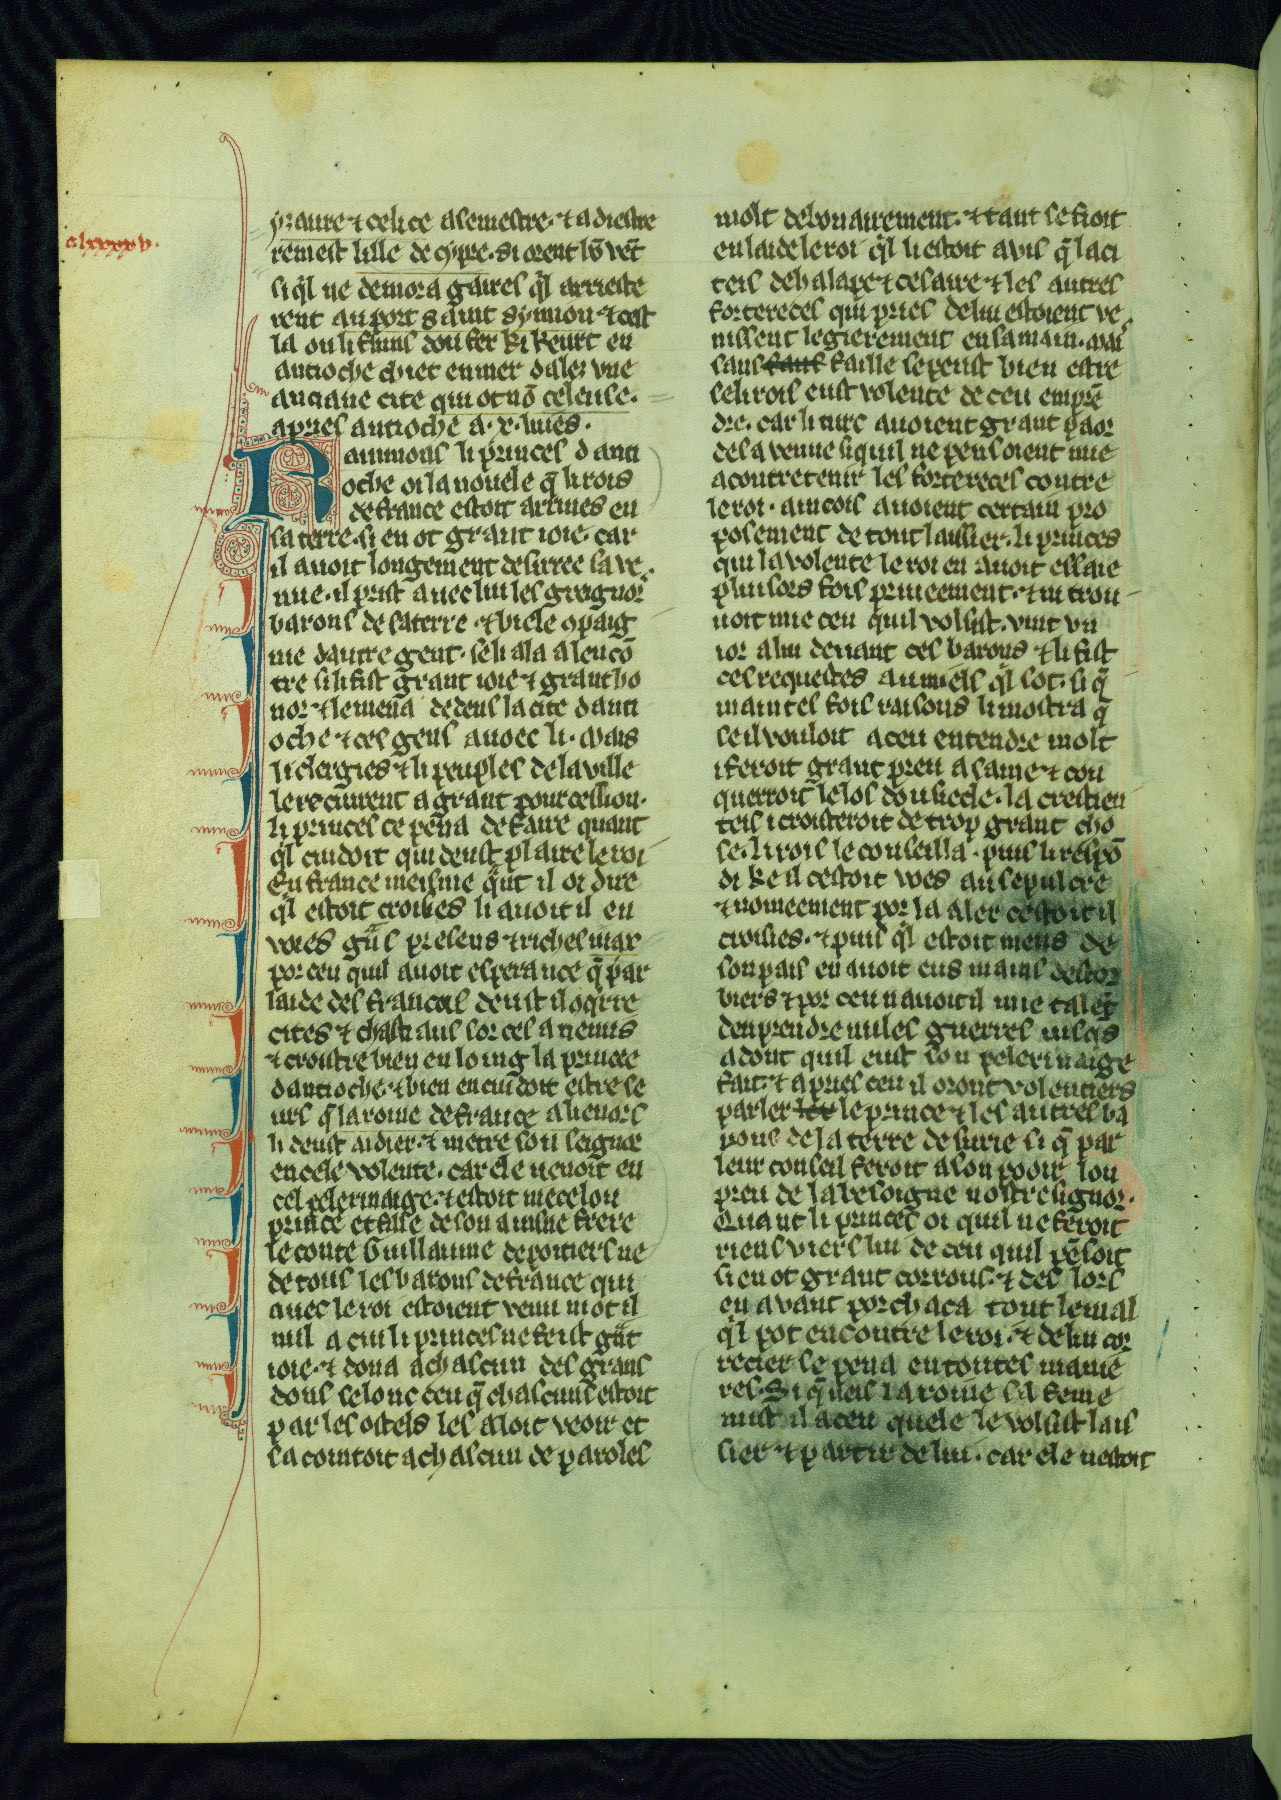 clxxxxv.
yzaure ⁊ celice a semestre. ⁊ a diestre
remest lille de cypre. si orent bō vēt
si ql̄ ne demora gaires ql̄ arrieste
rent au port saint symion ⁊ cest
la ou li fluns dou fer ki keurt en
antioche chiet en mer dales une
anciane cite qui ot nō celeuse.
apries antioche a .x. liues.
Raimons li princes danti
oche oi la nouele q̄ li rois
de france estoit arriues en
sa terre. si en ot grant ioie. car
il auoit longement desirree sa ve
nue. il prist auec lui les gregnor
barons de sa terre. ⁊ biele 9paig
nie dautre gent. se li ala a lencō
tre si li fist grant ioie ⁊ grant ho
nor. ⁊ le mena dedens la cite danti
oche ⁊ ces gens auoec li. Mais
li clergies ⁊ li peuples de la ville
le reciurent a grant pourcession.
li princes ce pena de faire quant
ql̄ cuidoit qui deust plaire le roi
En france meisme qāt il oi dire
ql̄ estoit croisies li auoit il en
voies grās presens ⁊ riches mar
por ceu quil auoit esperance q̄ par
laide des francois deust il oq̄rre
cites ⁊ chastiaus sor ces anemis
⁊ croistre bien en loing la princee
dantioche. ⁊ bien en cuidoit estre se
urs q̄ la roine de france alienors
li deust aidier. ⁊ metre son seignor
en cele volente. car ele uenoit en
cel pelerinaige. ⁊ estoit niece lou
prince et fille de son ainsne frere
le conte Guillaume de poitiers ne
de tous les barons de france qui
auec le roi estoient venu not il
nul a cui li princes ne feist grāt
ioie. ⁊ dona a chascun des grans
dons selonc ceu q̄ chascuns estoit
par les ostels les aloit veoir et
sacointoit a chascun de paroles
molt debonairement. ⁊ tant se fioit
en laide le roi ql̄ li estoit avis q̄ la ci
teis de halape ⁊ cesaire ⁊ les autres
fortereces qui pries de lui estoient ve
nissent legierement en sa main. mais
sans faut faille se peust bien estre
se li rois eust volente de ceu emprē
dre. car li turc auoient grant paor
de sa venue si quil ne pensoient mie
a contretenir les forteresces contre
le roi. aincois auoient certain pro
posement de tout laissier. li princes
qui la volente le roi en auoit essaie
pluisors fois priueement. ⁊ ni trou
uoit mie ceu quil volsist. vint vn
ior a lui deuant ces barons ⁊ li fist
ces requestes au miels ql̄ sot. si q̄
maintes fois raisons li mostra q̄
se il vouloit a ceu entendre molt
i feroit grant preu a same ⁊ con
querroit le los dou siecle. la crestien
teis i croisteroit de trop grant cho
se. li rois se conseilla. puis li respō
di ke il cestoit voes au sepulcre
⁊ nomeement por la aler cestoit il
croisies. ⁊ puis ql̄ estoit meus de
son pais en auoit eus mains destor
biers ⁊ por ceu n auoit il mie talēt
denprendre nules guerres iusqs
adont quil eust son pelerinaige
fait. ⁊ apries ceu il oront volentiers
parler les le prince ⁊ les autres ba
rons de la terre de surie si q̄ par
leur conseil feroit a son pooir lou
preu de la besoigne nostre signor.
Quant li princes oi quil ne feroit
riens viers lui de ceu quil pēsoit
si en ot grant corrous. ⁊ des lors
en avant porchaca tout le mal
ql̄ pot encontre le roi. ⁊ de lui cor
recier se pena en toutes manie
res. Si q̄ neis la roine sa feme
mist il a ceu quele le volsist lais
sier ⁊ partir de lui. car ele nestoit